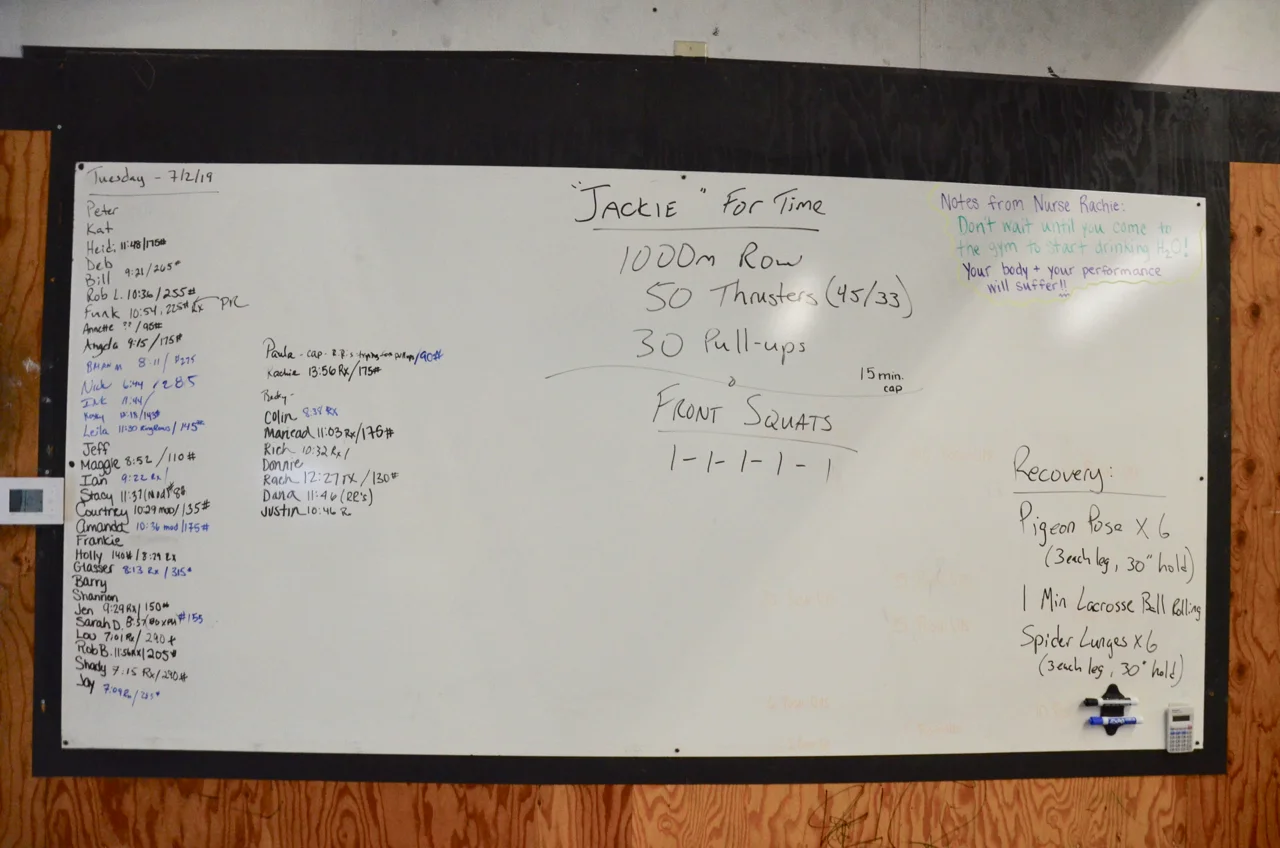 Tuesday - 7/2/19
Peter
Kat
Heidi 11:48/175#
Deb
Bill 9:21/265#
Rob L. 10:36/255#
Funk 10:54, 225# Rx PR
Annette ??/95#
Angela 9:15/175#
8:11/
Nick 6:44 /285
11:44/
Leila 11:30 /145#
Jeff
Maggie 8:52/110#
Ian 9:22 Rx/
Stacy 11:37 (Mod)
Courtney 10:29 mod/135#
Amanda 10:36 mod/175#
Frankie
Holly 140#/8:29 Rx
Glasser 8:13 Rx/315#
Barry
Shannon
Jen 9:29 Rx/150#
Sarah D. #155
Lou 7:01 Rx/290#
Rob B. 11:56Rx/205#
Shady 7:15 Rx/290#
Jay 7:09Rx/
Paula - cap - /90#
Kachie 13:56 Rx/175#
Becky -
Colin 8:38 Rx
Manead 11:03 Rx/175#
Rich 10:32 Rx/
Donnie
Rach 12:27 rx/130#
Dana 11:46 (RR's)
Justin 10:46 R
"JACKIE" For Time
1000m Row
50 Thrusters (45/33)
30 Pull-ups
15 min. cap
FRONT SQUATS
1-1-1-1-1
Notes from Nurse Rachie:
Don't wait until you come to
the gym to start drinking H2O!
Your body + your performance
will suffer!!
Recovery:
Pigeon Pose x 6
(3 each leg, 30" hold)
1 Min Lacrosse Ball Rolling
Spider Lunges x 6
(3 each leg, 30" hold)